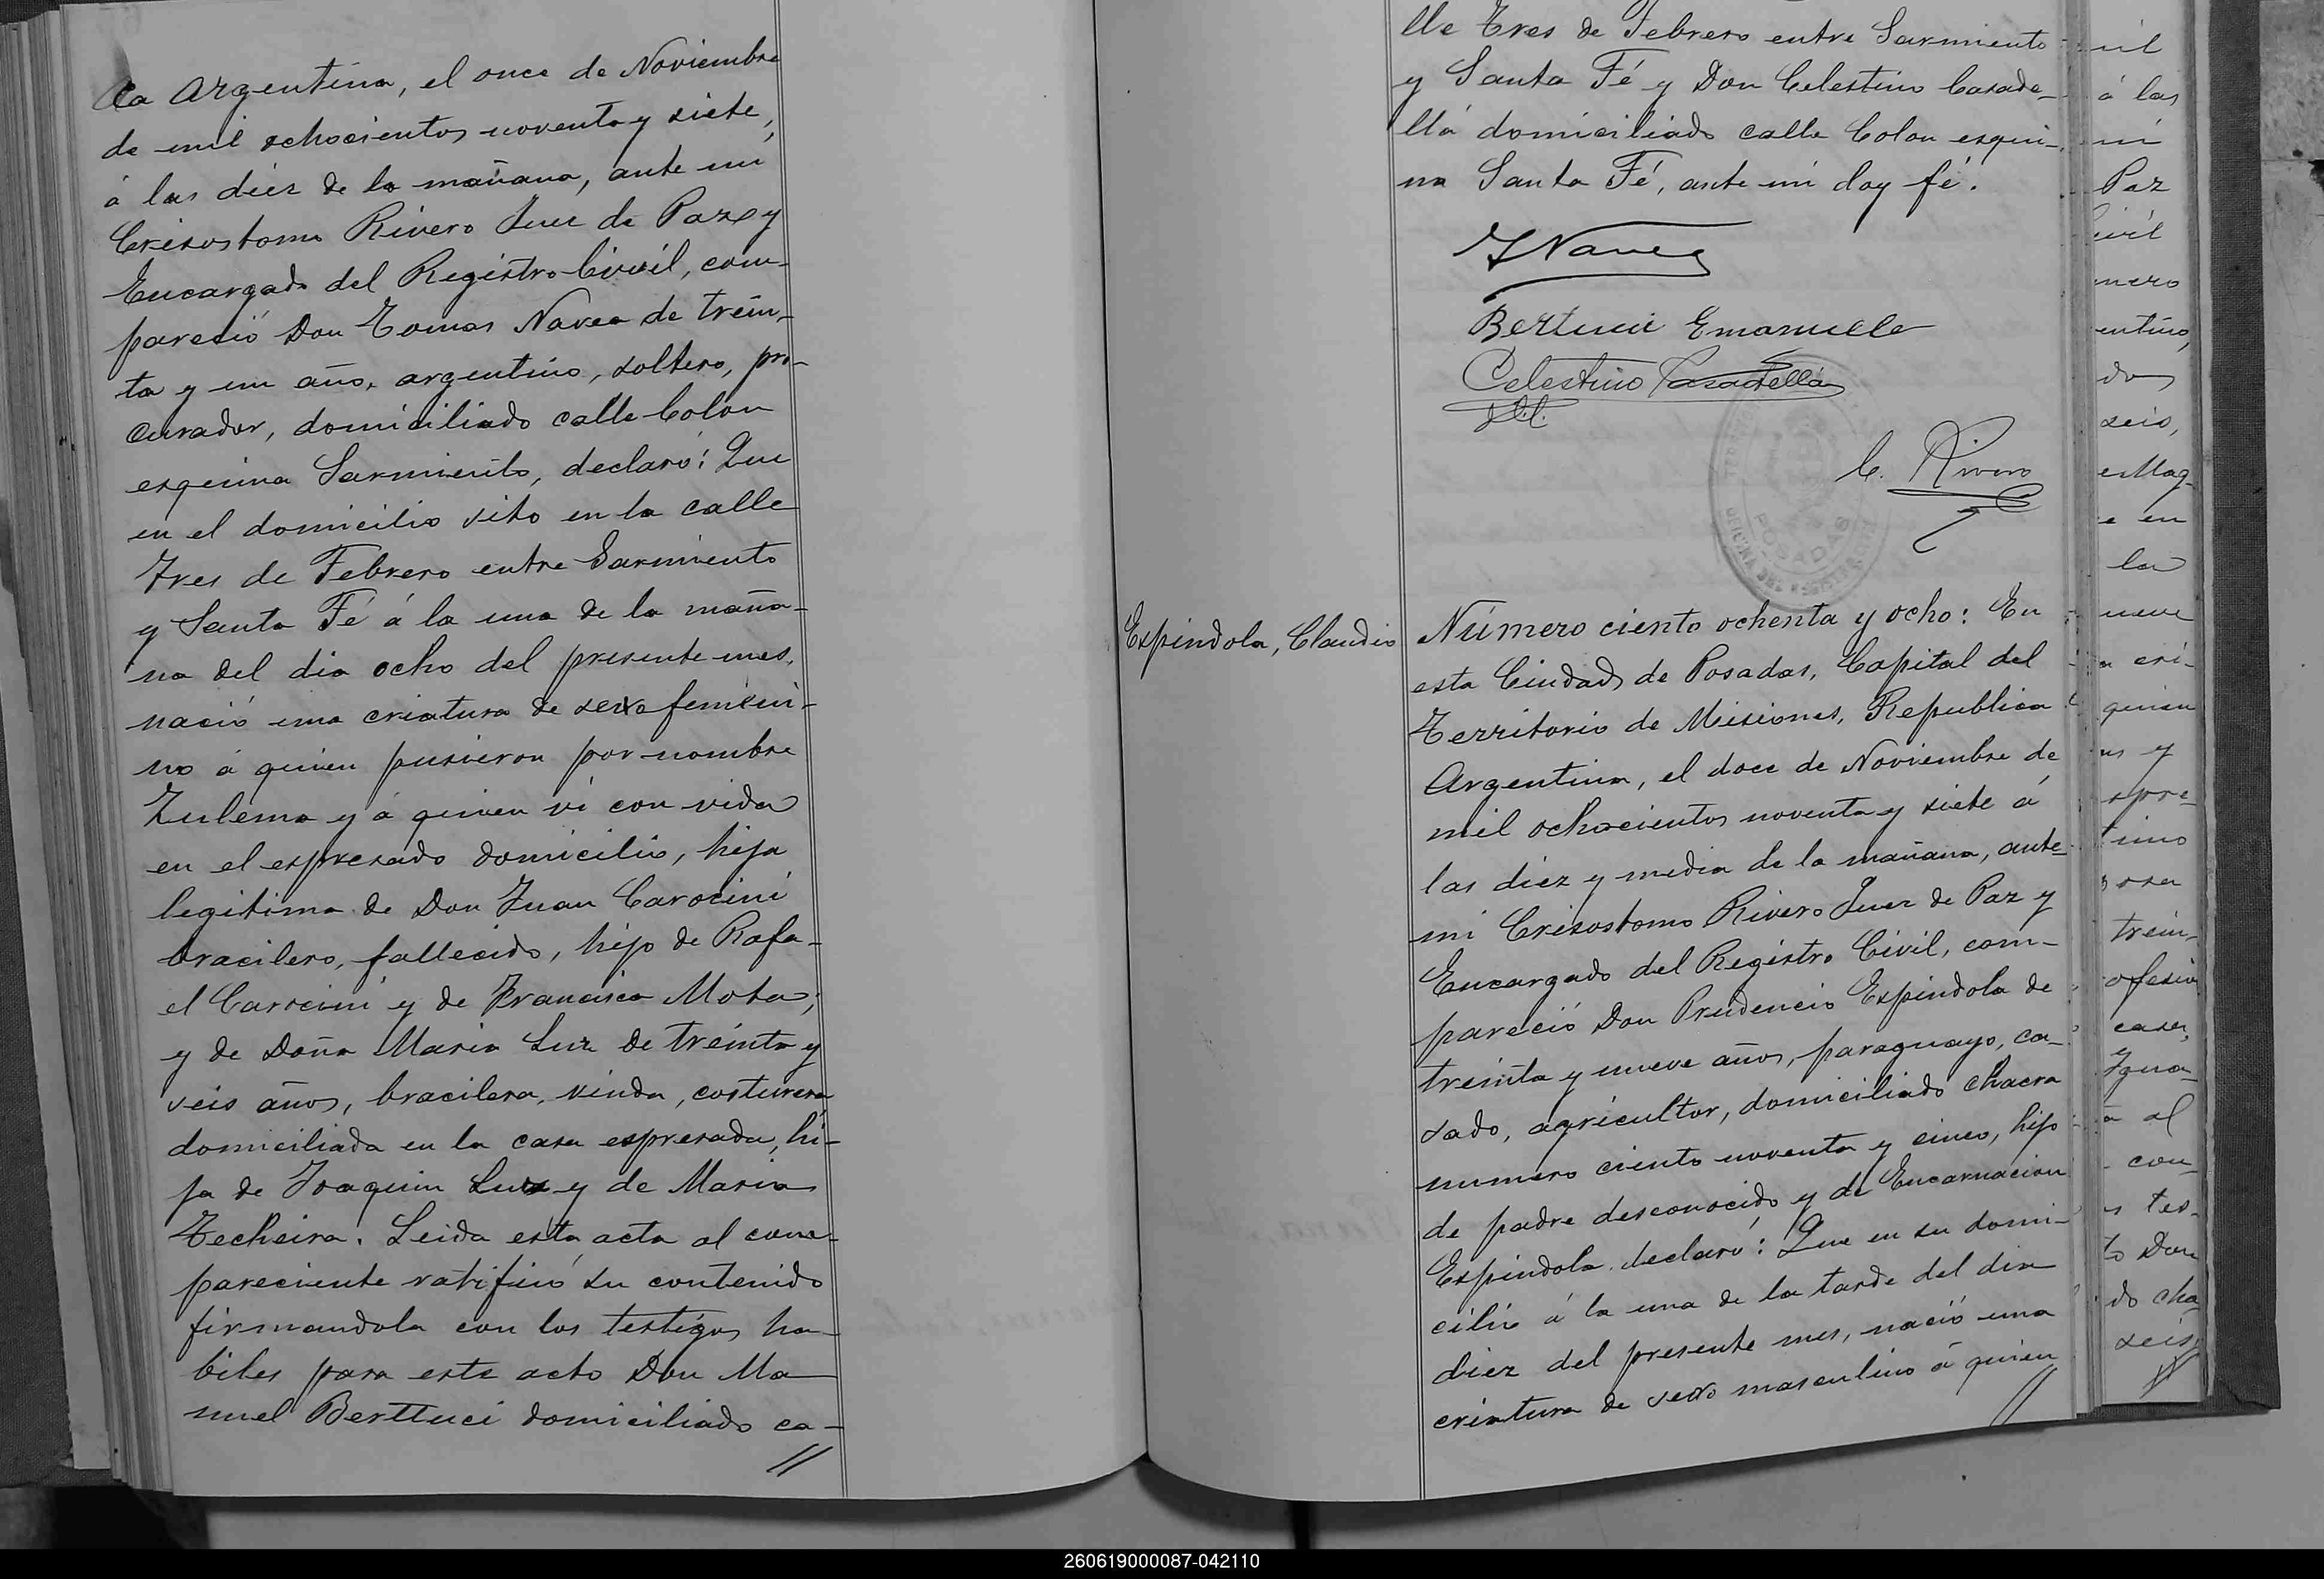 ca Argentina, el once de Noviembre
de mil ochocientos noventa y siete,
á las diez de la mañana, ante mi
Crisostomo Rivero Juez de Paz y
Encargado del Registro Civil, com-
pareció Don Tomas Navea de trein-
ta y un año, argentino, soltero, pro-
curador, domiciliado calle Colon
esquina Sarmiento, declaró: Que
en el domicilio sito en la calle
Tres de Febrero entre Sarmiento
y Santa Fé á la una de la maña-
na del dia ocho del presente mes,
nació una criatura de sexo femeni-
no á quien pusieron por nombre
Zulema y á quien ví con vida
en el espresado domicilio, hija
legitima de Don Juan Carocini
bracilero, fallecido, hijo de Rafa-
el Carocini y de Francisca Mota;
y de Doña Maria Luz de treinta y
seis años, bracilera, viuda, costurera,
domiciliada en la casa espresada, hi-
ja de Joaquin Luz y de Maria
Techeira. Leida esta acta al com-
pareciente ratificó su contenido
firmandola con los testigos ha-
biles para este acto Don Ma-
nuel Berttuci domiciliado ca-
//
lle Tres de Febrero entre Sarmiento
y Santa Fé y Don Celestino Casade-
llá domiciliado calle Colon esqui-
na Santa Fé, ante mi doy fé.
TNavea
Bertucci Emanuele
Celestino Casadellá
C. Rivero
POSADAS
Espindola, Claudio
Número ciento ochenta y ocho: En
esta Ciudad de Posadas, Capital del
Territorio de Misiones, Republica
Argentina, el doce de Noviembre de
mil ochocientos noventa y siete á
las diez y media de la mañana, ante
mi Crisostomo Rivero Juez de Paz y
Encargado del Registro Civil, com-
pareció Don Prudencio Espindola de
treinta y nueve años, paraguayo, ca-
sado, agricultor, domiciliado chacra
numero ciento noventa y cinco, hijo
de padre desconocido y de Encarnacion
Espindola declaró: Que en su domi-
cilio á la una de la tarde del dia
diez del presente mes, nació una
criatura de sexo masculino á quien
//
á las
mi
Paz
ivil
mero
entino,
dos
seis,
e en
la
nueve
cri-
quien
y
spre-
timo
trein-
ofesion
casa,
al
con-
tes-
to Don
do cha-
seis,
//
260619000087-042110